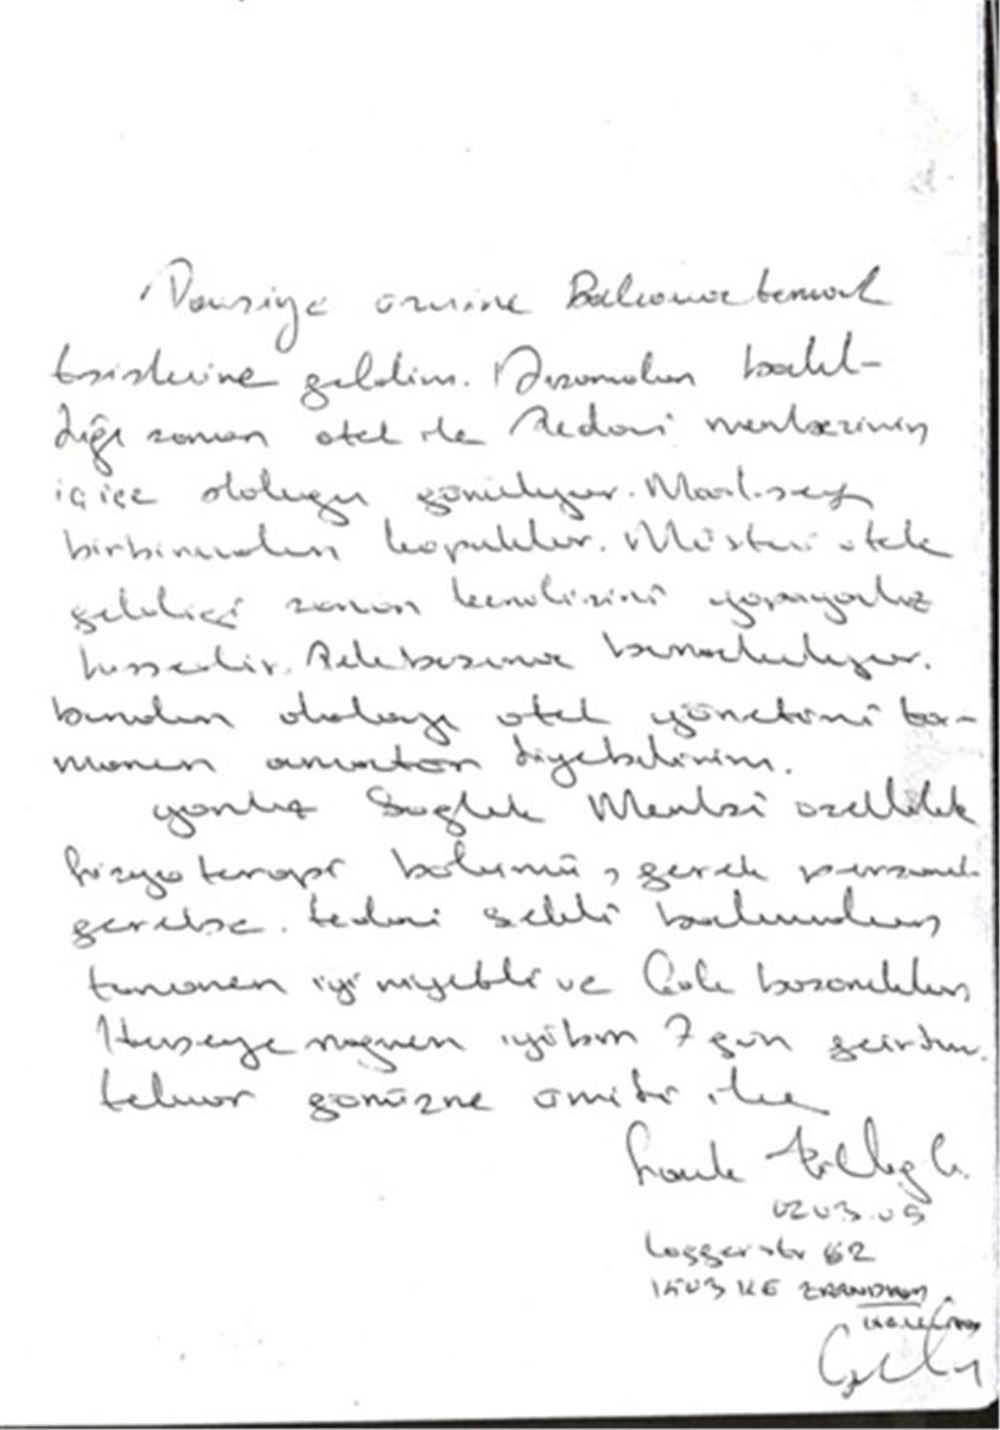 Tavsiye üzerine Balçova termal
tesislerine geldim. Dışarıdan bakıl-
dığı zaman otel ile tedavi merkezinin
iç içe olduğu görülüyor. Maalesef
birbirinden kopuklar. Müşteri otele
geldiği zaman kendisini yapayalnız
hisseder. bırakılıyor.
bundan dolayı otel yönetimi ta-
mamen amatör diyebilirim.
yanlız Sağlık Merkezi özellikle
fizyoterapi bölümü, gerek personel
gerekse tedavi şekli bakımından
tamamen iyi niyetli ve Çok başarılılar
Herşeye rağmen iyi bir 7 gün geçirdim.
tekrar görüşme ümidi ile
02.03.05
Loggerstr 62
1503 KE ZAANDAM